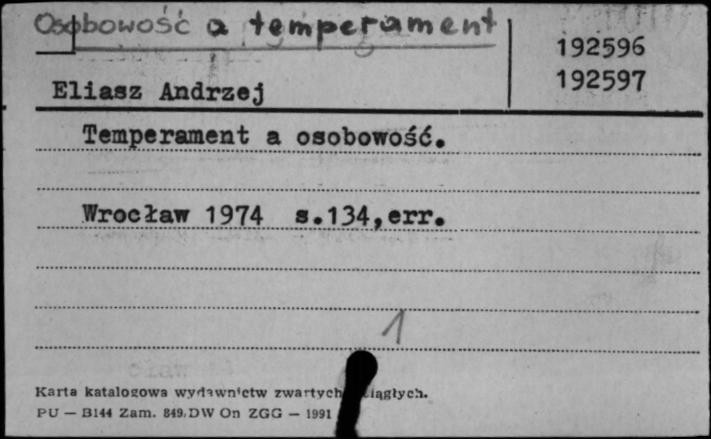 Osobowość a temperament
192596
192597
Eliasz Andrzej
Temperament a osobowość.
Wrocław 1974 s.134,err.
1
Karta katalogowa wydawnictw zwartych ciągłych.
PU — B144 Zam. 849.DW On ZGG — 1991